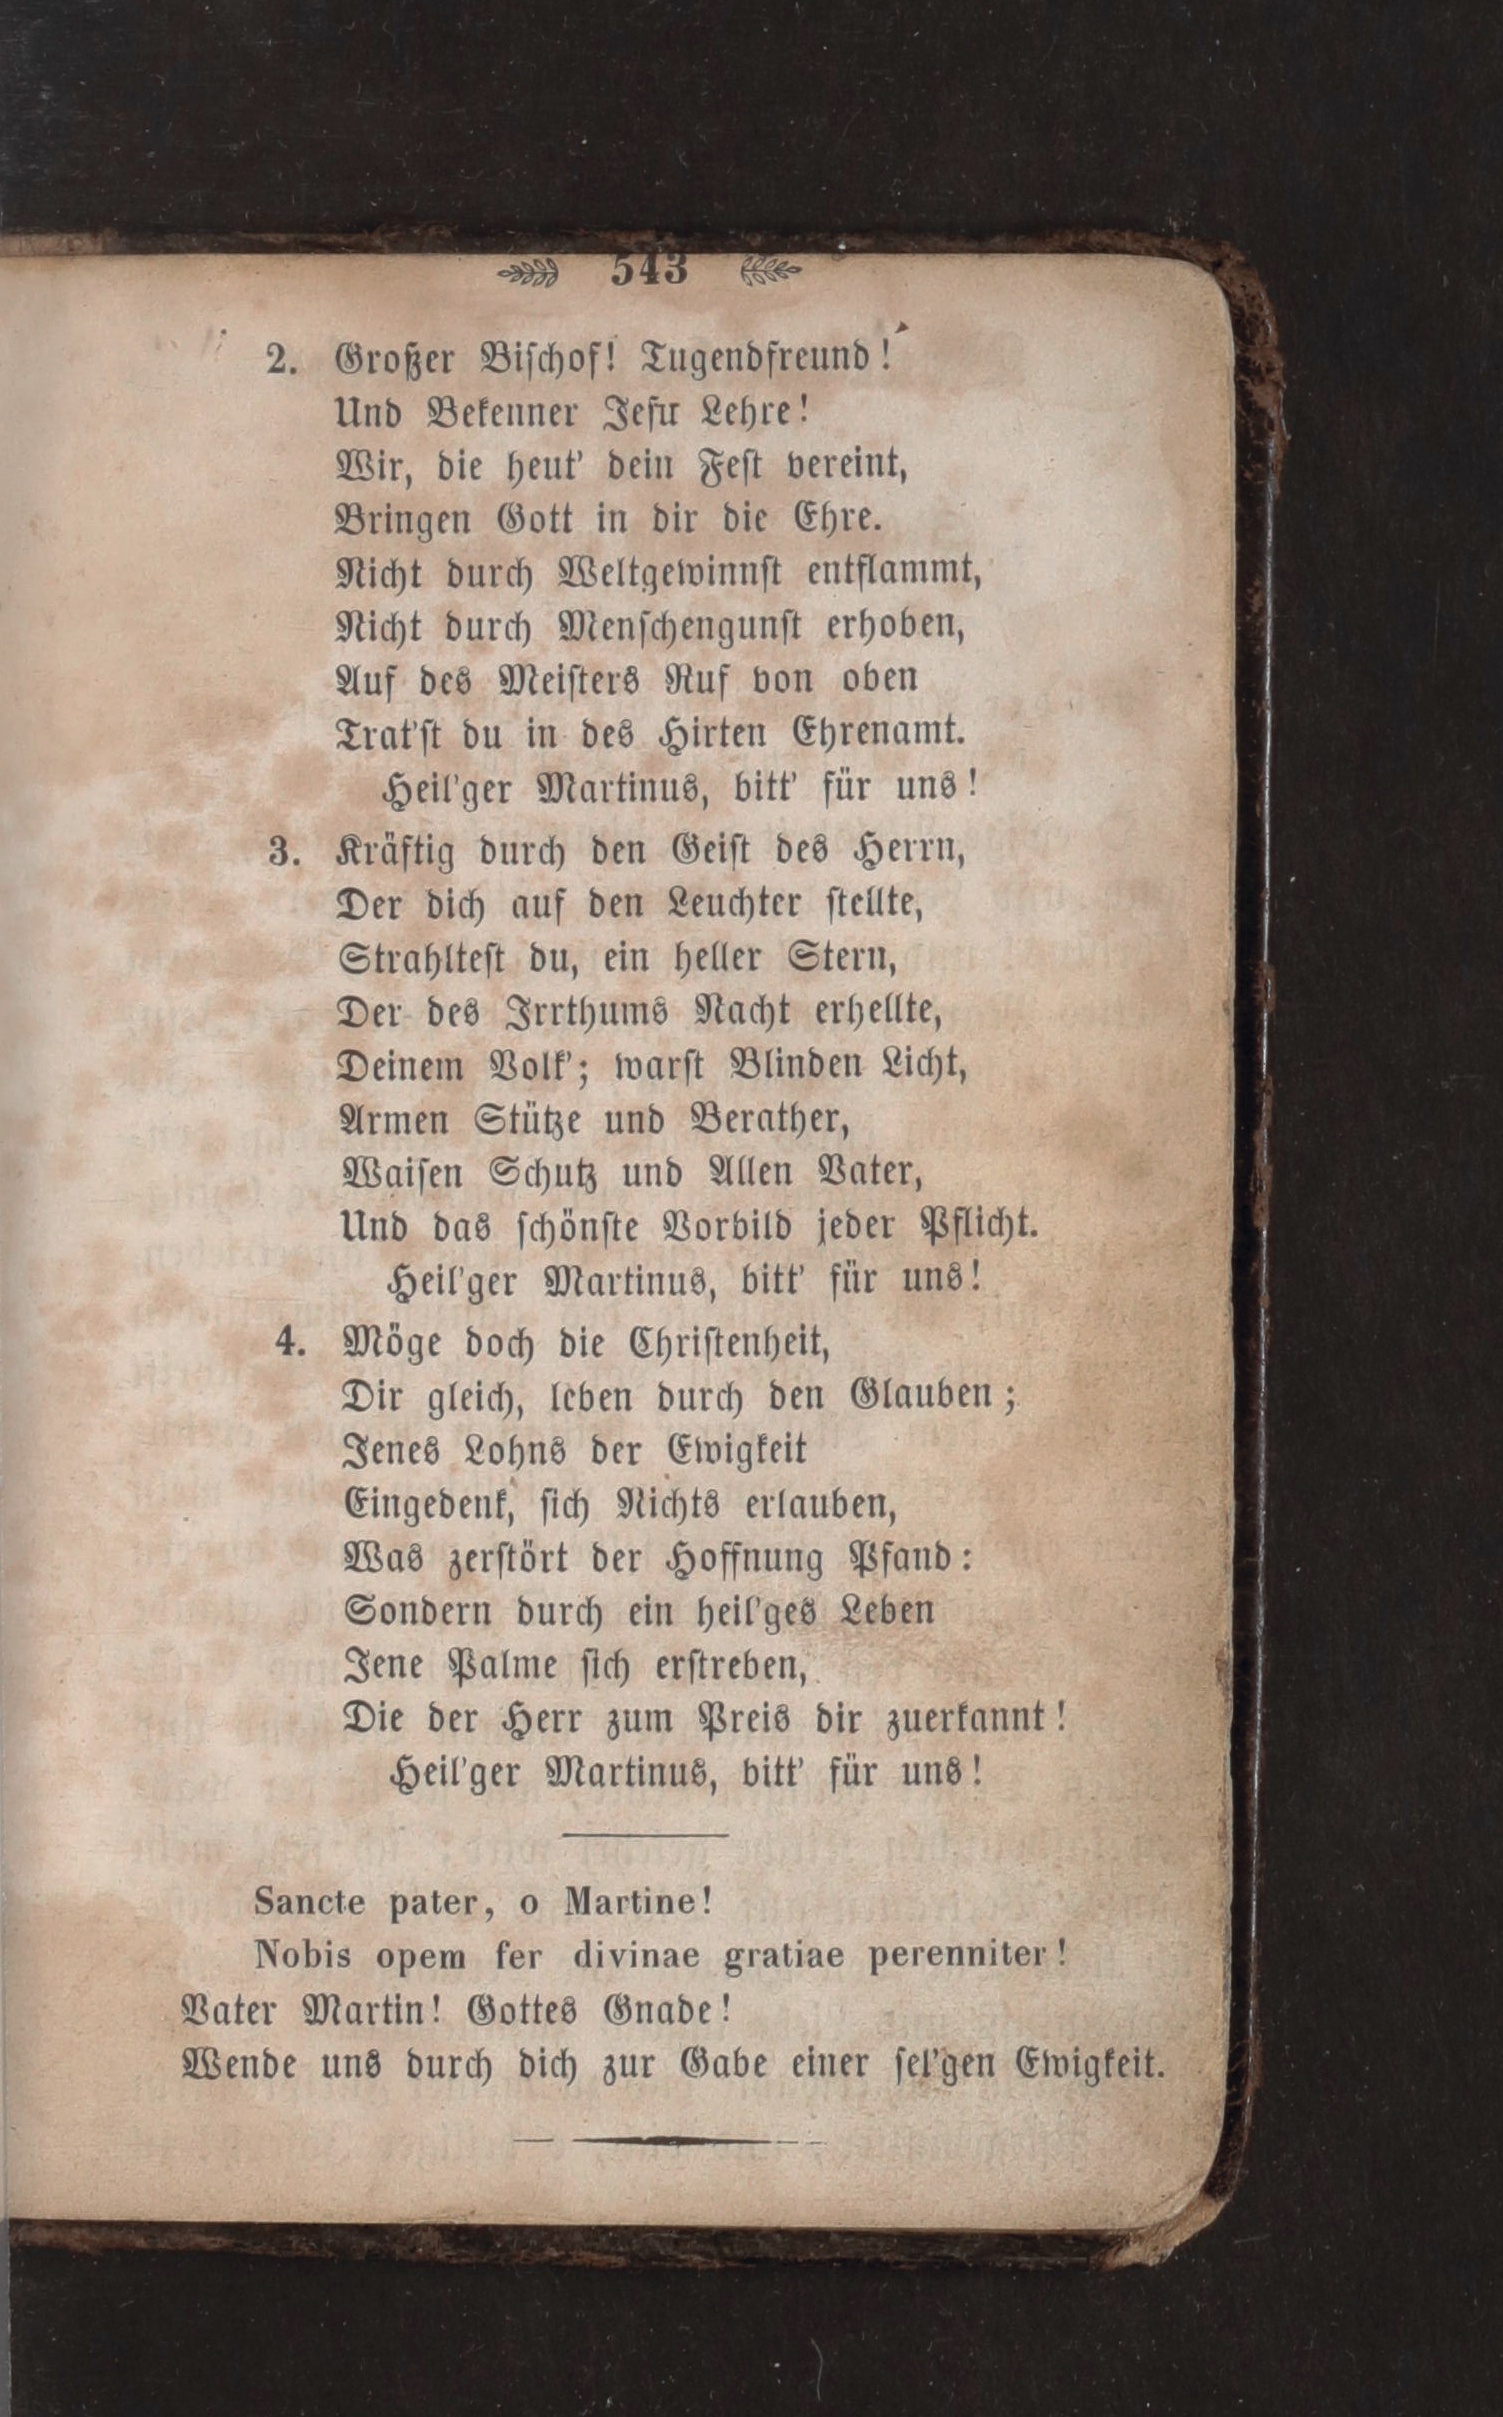 543
2. Großer Bischof! Tugendfreund!
Und Bekenner Jesu Lehre!
Wir, die heut' dein Fest vereint,
Bringen Gott in dir die Ehre.
Nicht durch Weltgewinnst entflammt,
Nicht durch Menschengunst erhoben,
Auf des Meisters Ruf von oben
Trat'st du in des Hirten Ehrenamt.
Heil'ger Martinus, bitt' für uns!
3. Kräftig durch den Geist des Herrn,
Der dich auf den Leuchter stellte,
Strahltest du, ein heller Stern,
Der des Irrthums Nacht erhellte,
Deinem Volk'; warst Blinden Licht,
Armen Stütze und Berather,
Waisen Schutz und Allen Vater,
Und das schönste Vorbild jeder Pflicht.
Heil'ger Martinus, bitt' für uns!
4. Möge doch die Christenheit,
Dir gleich, leben durch den Glauben;
Jenes Lohns der Ewigkeit
Eingedenk, sich Nichts erlauben,
Was zerstört der Hoffnung Pfand:
Sondern durch ein heil'ges Leben
Jene Palme sich erstreben,
Die der Herr zum Preis dir zuerkannt!
Heil'ger Martinus, bitt' für uns!
Sancte pater, o Martine!
Nobis opem fer divinae gratiae perenniter!
Vater Martin! Gottes Gnade!
Wende uns durch dich zur Gabe einer sel'gen Ewigkeit.